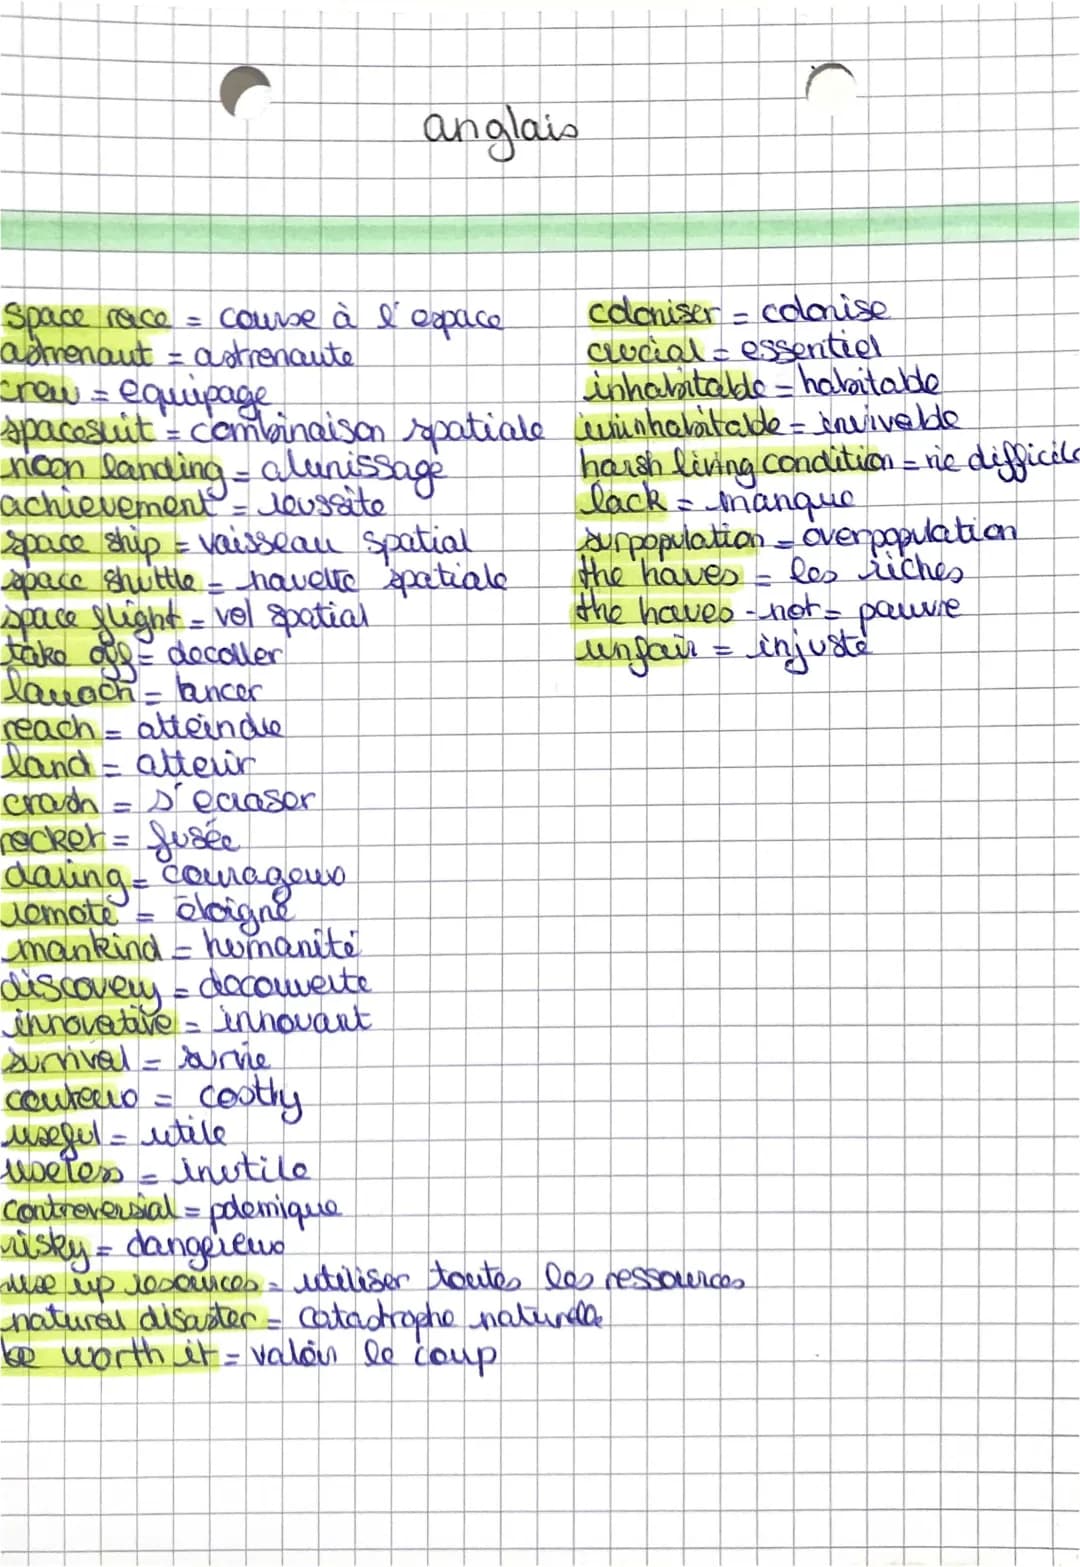 anglais
Space race = course à l'espace
astrenaut = astrenaute
crew = equipage
spacesuit = combinaison spatiale
noon landing = alunissage
achievement = reussite
space ship = vaisseau spatial
space shuttle = navette spatiale
space flight = vol spatial
take off = decoller
launch = lancer
reach = atteindre
land = atterir
crash = s'ecraser
rocket = fusée
daring = courageux
remote = éloigné
mankind = humanité
discovery = decouverte
innovative = innovant
survival = survie
couteux = costly
useful = utile
useless = inutile
controversial = polemique
risky = dangereux
use up resources = utiliser toutes les ressources
natural disaster = catastrophe naturelle
be worth it = valoir le coup
coloniser = colonise
crucial = essentiel
inhabitable = habitable
uninhabitable = invivable
harsh living condition = vie difficile
lack = manque
surpopulation = overpopulation
the haves = les riches
the haves-not = pauvre
unfair = injuste